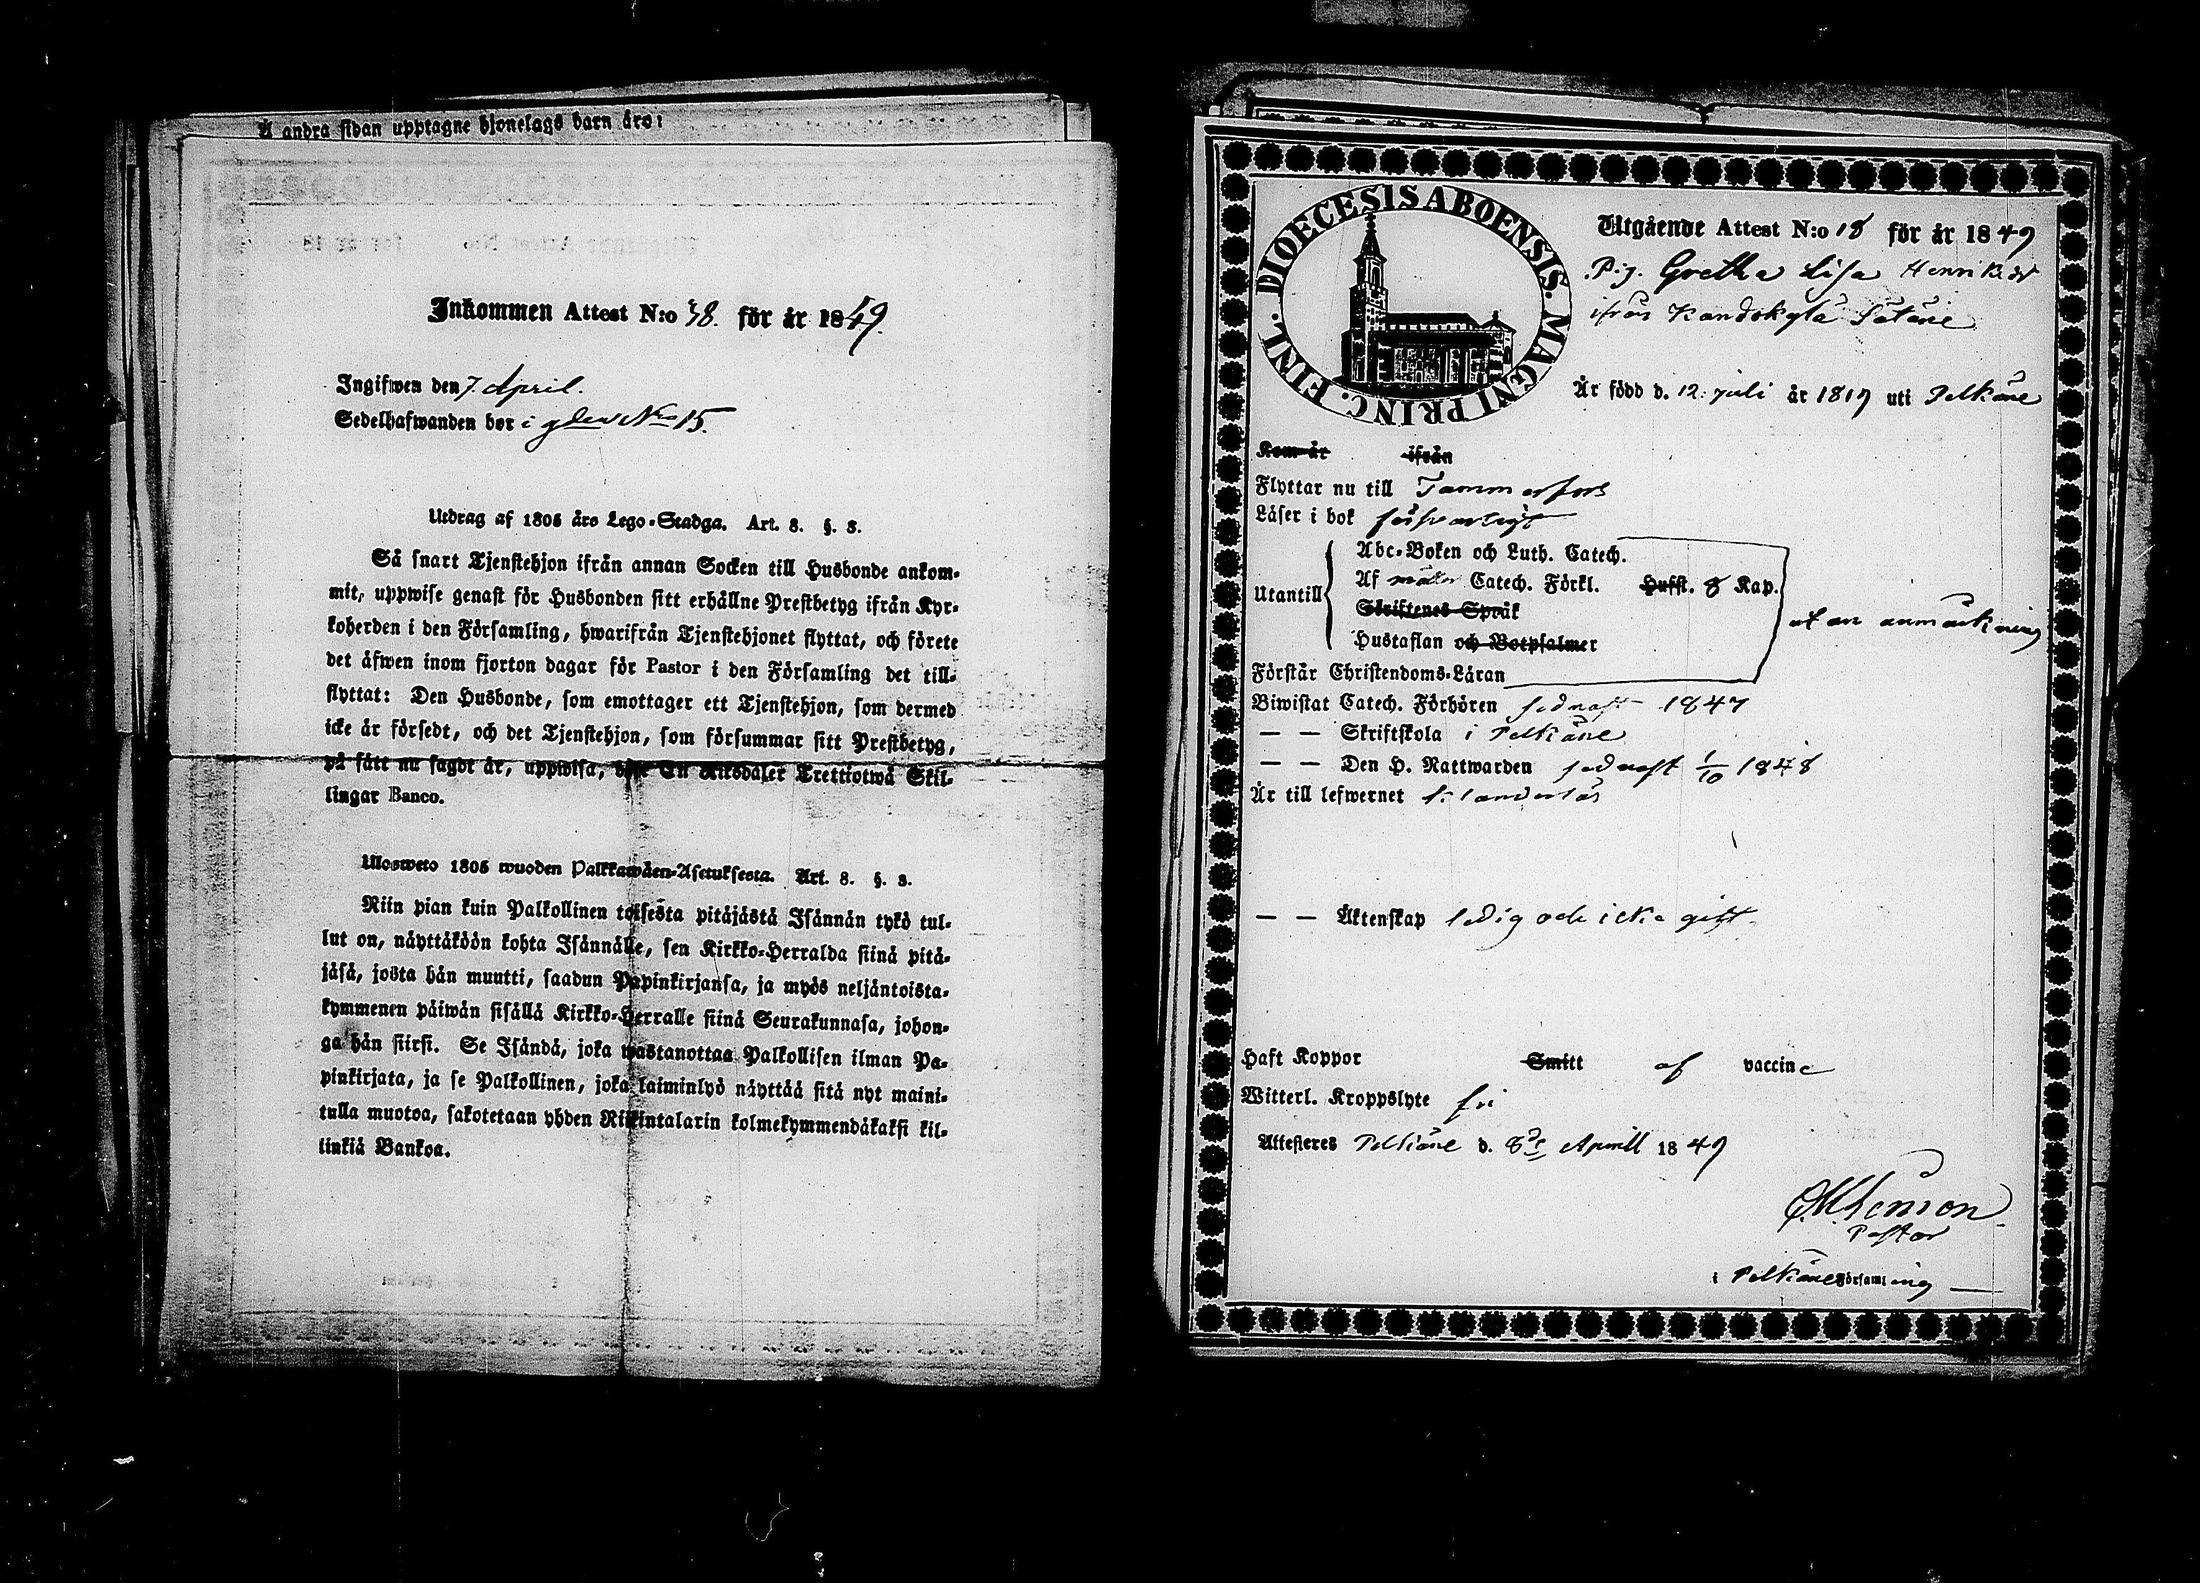 Å andra sidan upptagne hjonelags barn äro:
Inkommen Attest N:o 38. för år 1849.
Ingifwen den 7 April.
Sedelhafwanden bor i gden No 15.
Utdrag af 1805 års Lego-Stadga. Art. 8. §. 3.
Så snart Tjenstehjon ifrån annan Socken till Husbonde ankom-
mit, uppwise genast för Husbonden sitt erhållne Prestbetyg ifrån Kyr-
koherden i den Församling, hwarifrån Tjenstehjonet flyttat, och förete
det äfwen inom fjorton dagar för Pastor i den Församling det till-
flyttat: Den Husbonde, som emottager ett Tjenstehjon, som dermed
icke är försedt, och det Tjenstehjon, som försummar sitt Prestbetyg,
på sätt nu sagdt är, uppwisa, böte En Riksdaler Trettiotwå Skil-
lingar Banco.
Ulosweto 1805 wuoden Palkkawäen-Asetuksesta. Art. 8. §. 3.
Niin pian kuin Palkollinen toisesta pitäjästä Isännän tykö tul-
lut on, näyttäköön kohta Isännälle, sen Kirkko-Herralda siinä pitä-
jäsä, josta hän muutti, saadun Papinkirjansa, ja myös neljäntoista-
kymmenen päiwän sisällä Kirkko-Herralle siinä Seurakunnasa, johon-
ga hän siirsi. Se Isändä, joka wastanottaa Palkollisen ilman Pa-
pinkirjata, ja se Palkollinen, joka laiminlyö näyttää sitä nyt maini-
tulla muotoa, sakotetaan yhden Riikintalarin kolmekymmendäkaksi kil-
linkiä Bankoa.
DIOECESIS ABOENSIS. MAGNI PRINC. FINL.
Utgående Attest N:o 18 för år 1849
Pig. Gretha Lisa Henriksdr
ifrån Kandokylä Sätäne
Är född d. 12 juli år 1819 uti Pelkäne
Kom år ifrån
Flyttar nu till Tammerfors
Läser i bok försvarligt
Utantill
Abc-Boken och Luth. Catech.
Af mäler Catech. Förkl. Hufst. 8 Kap.
Skriftenes Språk
Hustaflan och Botpsalmer
utan anmärkning
Förstår Christendoms-Läran
Biwistat Catech. Förhören sednast 1847
— — Skriftskola i Pelkäne
— — Den H. Nattwarden sednast 1/10 1848
Är till lefwernet klanderlös
— — Äktenskap ledig och icke gift
Haft Koppor Smitt af vaccine
Witterl. Kroppslyte fri
Attesteres Pelkäne d. 8de Aprill 1849
Pastor
i Pelkäne Församling